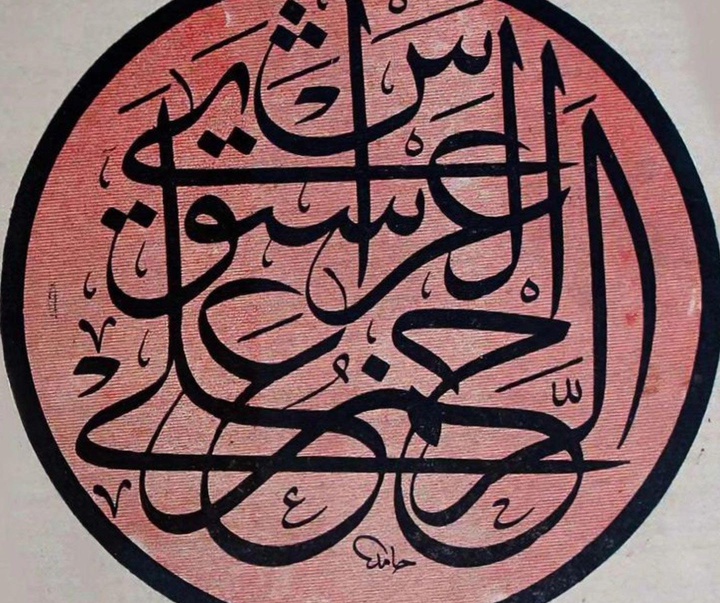 الرحمن على العرش استوى
حامد